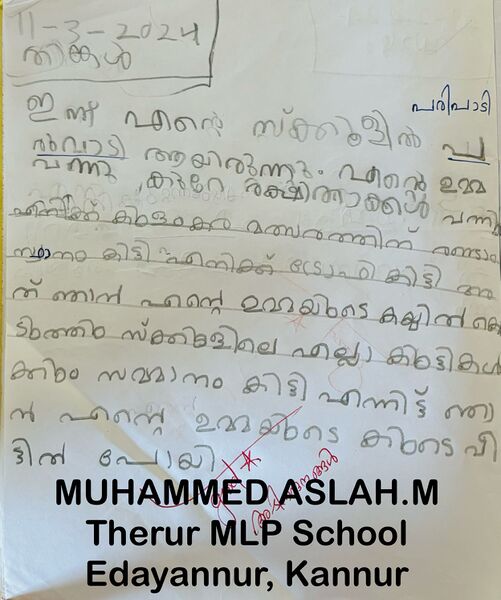 11-3-2024
തിങ്കൾ
പരിപാടി
ഇന്ന് എന്റെ സ്ക്കൂളിൽ പ
രുവാടി ആയിരുന്നു. എന്റെ ഉമ്മ
വന്നു കുറേ രക്ഷിതാക്കൾ വന്നി
എനിക്ക് മത്സരത്തിന് രണ്ടാം
സ്ഥാനം കിട്ടി എനിക്ക് ട്രോഫി കിട്ടി അ
ത് ഞാൻ എന്റെ ഉമ്മയുടെ കയ്യിൽ കൊ
ടുത്തു സ്ക്കൂളിലെ എല്ലാ കുട്ടികൾ
ക്കും സമ്മാനം കിട്ടി എന്നിട്ട് ഞാ
ൻ എന്റെ ഉമ്മയുടെ കൂടെ വീ
ട്ടിൽ പോയി
അഭിനന്ദനങ്ങൾ
MUHAMMED ASLAH.M
Therur MLP School
Edayannur, Kannur